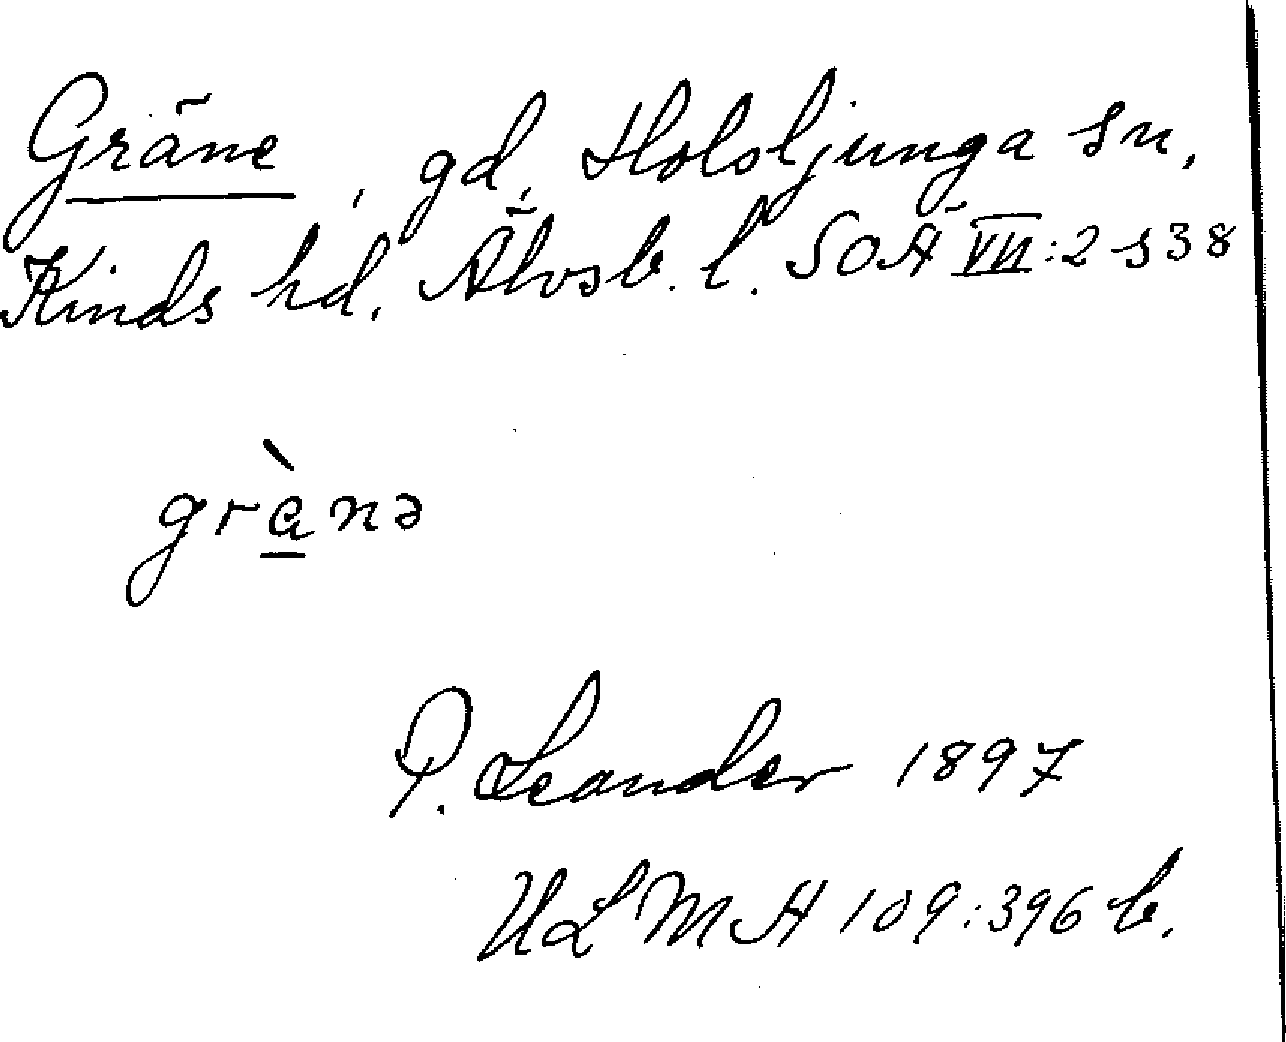 Gräne, gd, Holsljunga sn,
Kinds hd. Älvsb. l. SOÄ VII:2 s 38
grànə
P. Leander 1897
ULMA 109:396 b.